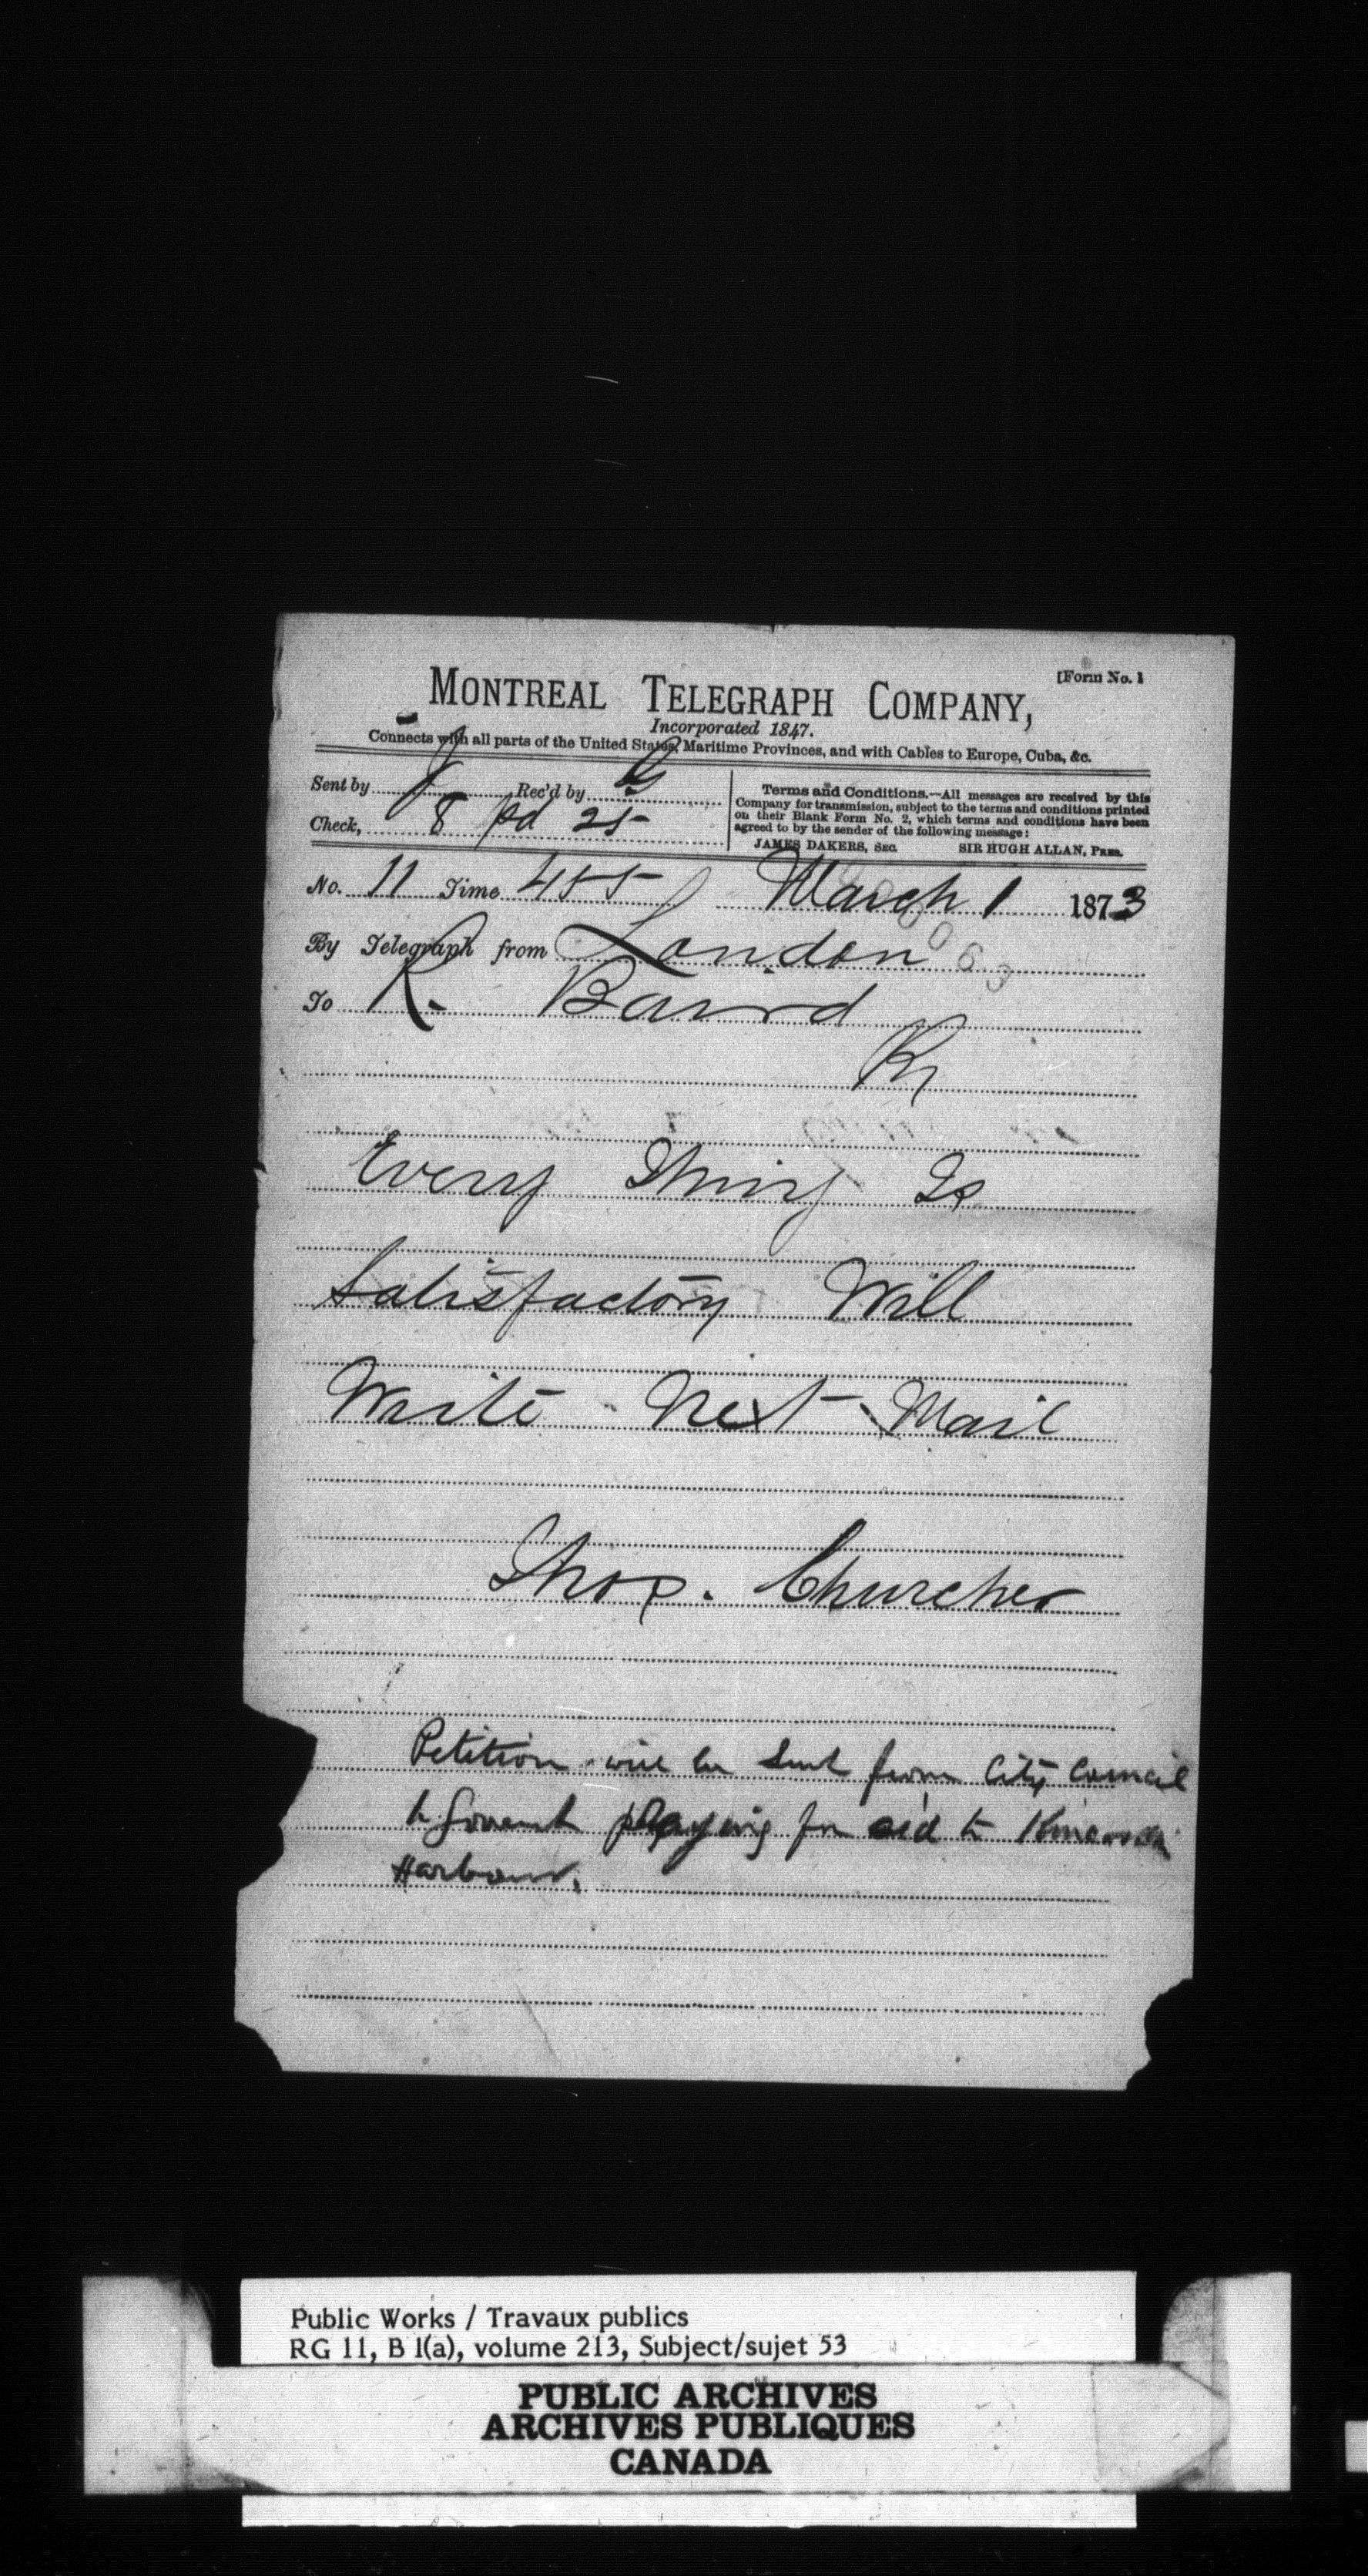 [Form No. 1
MONTREAL TELEGRAPH COMPANY,
Incorporated 1847.
Connects with all parts of the United States, Maritime Provinces, and with Cables to Europe, Cuba, &c.
Sent by J Rec'd by G
Check, 8 pd 25
Terms and Conditions.—All messages are received by this
Company for transmission, subject to the terms and conditions printed
on their Blank Form No. 2, which terms and conditions have been
agreed to by the sender of the following message:
JAMES DAKERS, SEC. SIR HUGH ALLAN, PRES.
No. 11 Time 455 March 1 1873
By Telegraph from London
To R. Baird
Every Thing Is
Satisfactory Will
Write Next Mail
Thos. Churcher
Petition will be sent from City Council
to Goverment praying for aid to Kincardin
Harbour.
Public Works / Travaux publics
RG 11, B 1(a), volume 213, Subject/sujet 53
PUBLIC ARCHIVES
ARCHIVES PUBLIQUES
CANADA